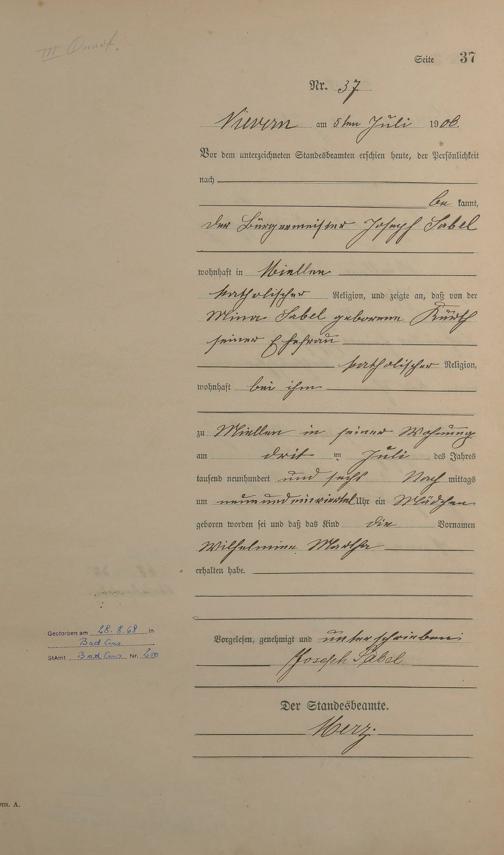 III Quart.
Seite 37
Nr. 37
Nievern am 5ten Juli 1906.
Vor dem unterzeichneten Standesbeamten erschien heute, der Persönlichkeit
nach
be kannt,
der Bürgermeister Joseph Sabel
wohnhaft in Miellen
katholischer Religion, und zeigte an, daß von der
Mina Sabel geborene
seiner Ehefrau
katholischer Religion,
wohnhaft bei ihm
zu Miellen in seiner Wohnung
am drit en Juli des Jahres
tausend neunhundert und sechs Nach mittags
um neun und Uhr ein Mädchen
geboren worden sei und daß das Kind die Vornamen
Wilhelmine Martha
erhalten habe.
Vorgelesen, genehmigt und unterschrieben
Joseph Sabel
Der Standesbeamte.
Merz.
Gestorben am 28.8.68 in
Bad Ems
StAmt Bad Ems Nr.
rm. A.